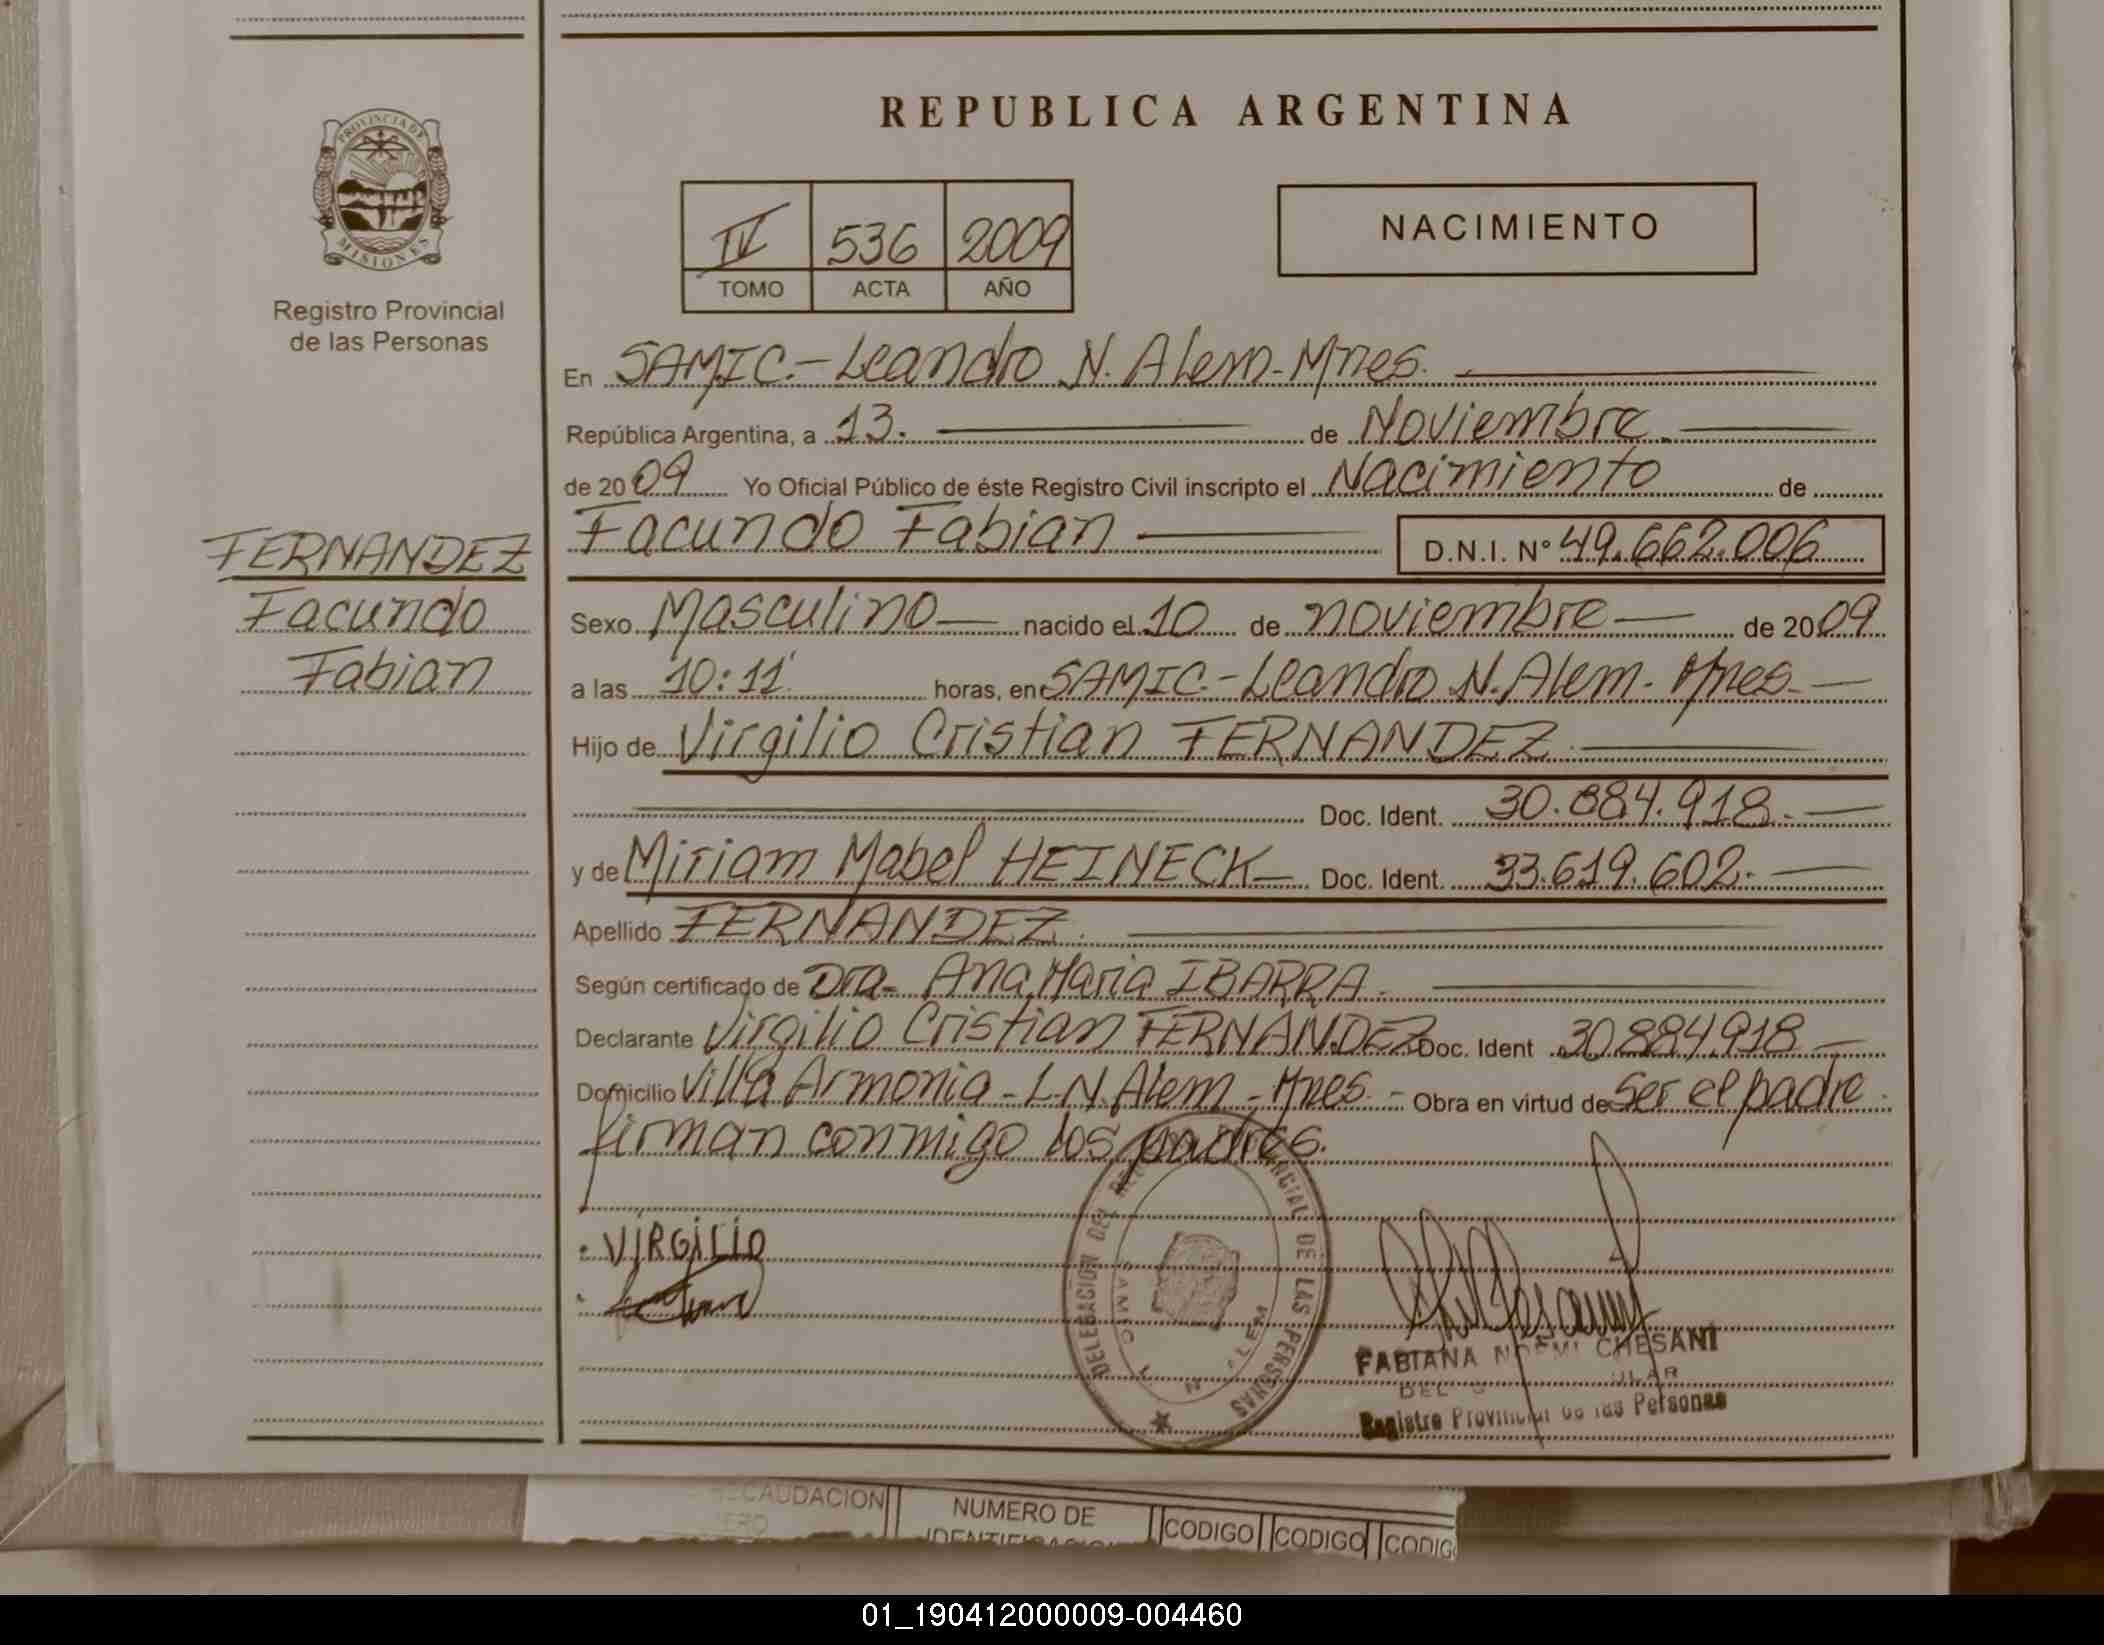 PROVINCIA DE
MISIONES
Registro Provincial
de las Personas
FERNANDEZ
Facundo
Fabian
REPUBLICA ARGENTINA
IV 536 2009
TOMO ACTA AÑO
NACIMIENTO
En SAMIC.- Leandro N. Alem - Mnes.
República Argentina, a 13. de Noviembre
de 2009 Yo Oficial Público de éste Registro Civil inscripto el Nacimiento de
Facundo Fabian D.N.I. N° 49.662.006
Sexo Masculino nacido el 10 de noviembre de 2009
a las 10:11 horas, en SAMIC.- Leandro N. Alem. Mnes.
Hijo de Virgilio Cristian FERNANDEZ
Doc. Ident. 30.884.918.
y de Miriam Mabel HEINECK Doc. Ident. 33.619.602.
Apellido FERNANDEZ.
Según certificado de Dra. Ana Maria IBARRA.
Declarante Virgilio Cristian FERNANDEZ Doc. Ident 30.884.918
Domicilio Villa Armonia - L.N. Alem - Mnes. - Obra en virtud de ser el padre.
firman conmigo los padres.
VIRGILIO
DELEGACION DEL DE LAS PERSONAS
SAMIC L. N. ALEM
FABIANA NOEMI CHESANI
Registro Provincial de las Personas
RECAUDACION
NUMERO DE
IDENTIFICACION
CODIGO CODIGO CODIGO
01_190412000009-004460